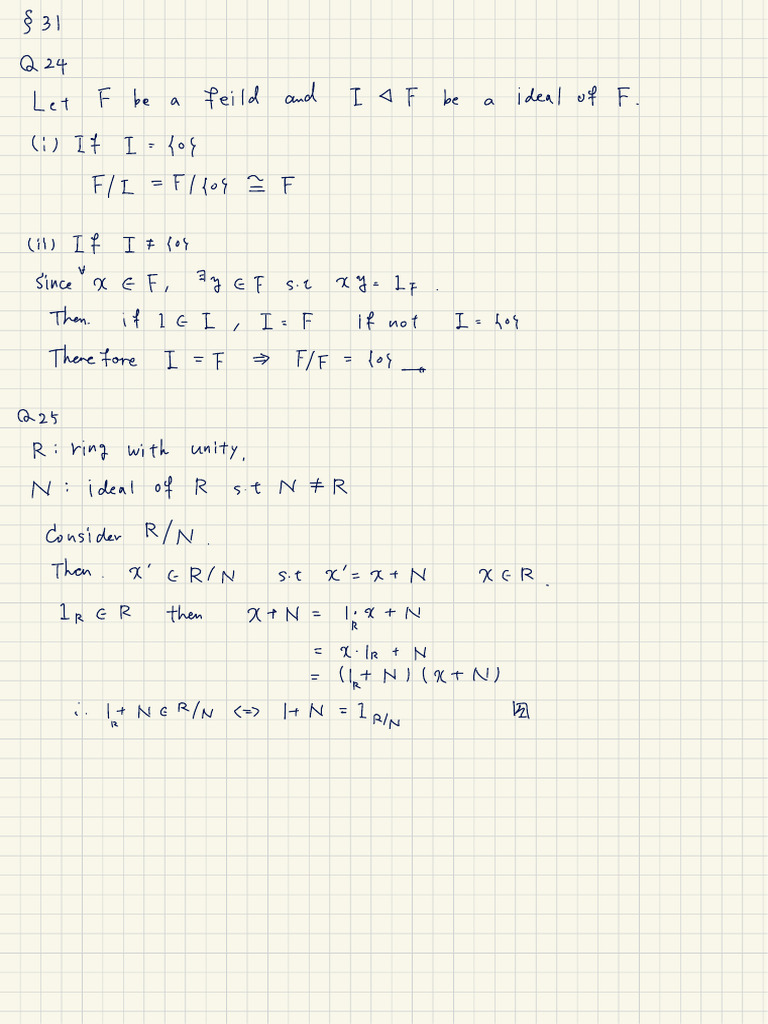 § 31
Q 24
Let F be a feild and I ◁ F be a ideal of F.
(i) If I = {0}
F/I = F/{0} ≅ F
(ii) If I ≠ {0}
Since ∀x ∈ F, ∃y ∈ F s.t xy = 1_F .
Then. if 1 ∈ I , I = F if not I = {0}
Therefore I = F ⇒ F/F = {0}
Q25
R : ring with unity,
N : ideal of R s.t N ≠ R
Consider R/N .
Then. x' ∈ R/N s.t x' = x + N x ∈ R .
1_R ∈ R then x + N = 1_R · x + N
= x · 1_R + N
= (1_R + N) (x + N)
∴ 1_R + N ∈ R/N <=> 1 + N = 1_{R/N}